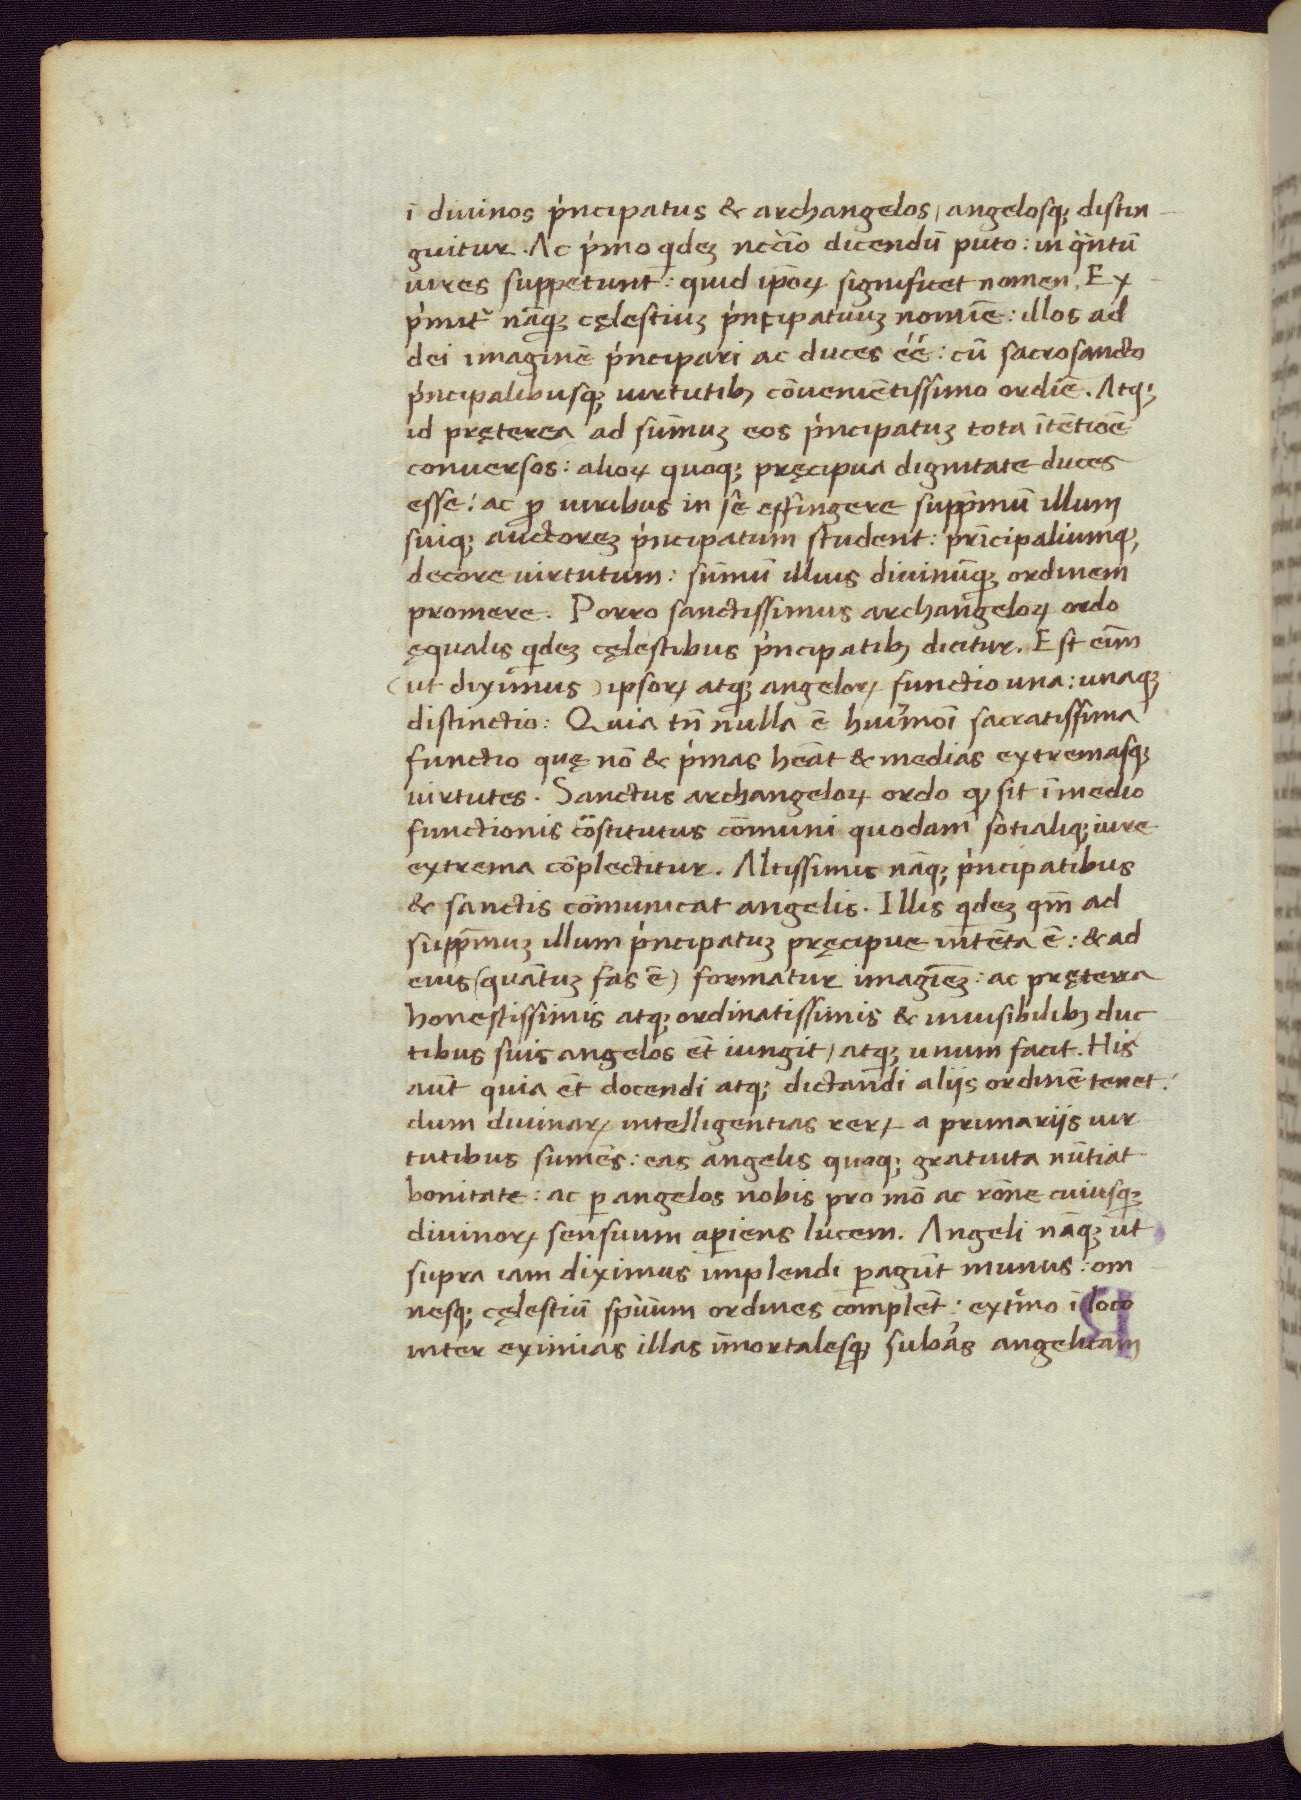 ī diuinos pͥncipatus & archangelos, angelosq; distin-
guitur. Ac pͥmo qͥdeꝫ nccīo dicendū puto: in qͣntū
uires suppetunt: quid ip̄oꝝ significet nomen. Ex-
pͥmitᷣ nāqꝫ cęlestiuꝫ pͥncipatuuꝫ nomīe: illos ad
dei imaginē pͥncipari ac duces éé: cū sacrosancto
pͥncipalibusq; uirtutibꝫ cōuenietīssimo ordīe. Atq;
id pręterea ad sum̄uꝫ eos pͥncipatuꝫ tota ītētioē
conuersos: alioꝝ quoq; pręcipua dignitate duces
esse: ac ꝓ uiribus in se effingere supp̄mū illum
suiq; auctoreꝫ pͥncipatum student: prīcipaliumq;
decore uirtutum: sūmū illius diuinūqꝫ ordinem
promere. Porro sanctissimus archangeloꝝ ordo
ęqualis qͥdeꝫ cęlestibus pͥncipatibꝫ dicitur. Est eīm
(ut diximus) ipsoꝝ atqꝫ angeloꝝ functio una: unaqꝫ
distinctio: Quia tn̄ nulla ē huiᷣmōi sacratissima
functio quę nō & pͥmas heāt & medias extremasqꝫ
uirtutes. Sanctus archangeloꝝ ordo qꝫ sit ī medio
functionis cōstitutus cōmuni quodam sotialiq; iure
extrema cōplectitur. Altissimis nāq; pͥncipatibus
& sanctis cōmunicat angelis. Illis qͥdeꝫ qm̄ ad
supp̄muꝫ illum pͥncipatuꝫ pręcipue intēta ē: & ad
eius (quātuꝫ fas ē) formatur imagīeꝫ: ac pręterea
honestissimis atq; ordinatissimis & inuisibilibꝫ duc-
tibus suis angelos et̄ iungit, atq; unum facit. His
aūt quia et̄ docendi atq; dictandi aliis ordinē tenet:
dum diuinaꝝ intelligentias reꝝ a primariis uir-
tutibus sumēs: eas angelis quoq; gratuita nūtiat
bonitate: ac ꝑ angelos nobis pro mō ac rōne cuiusqꝫ
diuinoꝝ sensuum aꝑiens lucem. Angeli nāqꝫ ut
supra iam diximus implendi ꝑagūt munus: om-
nesq; cęlestiū spūum ordines complēt: extͥmo ī loco
inter eximias illas īmortalesqꝫ subᷣas angelicam